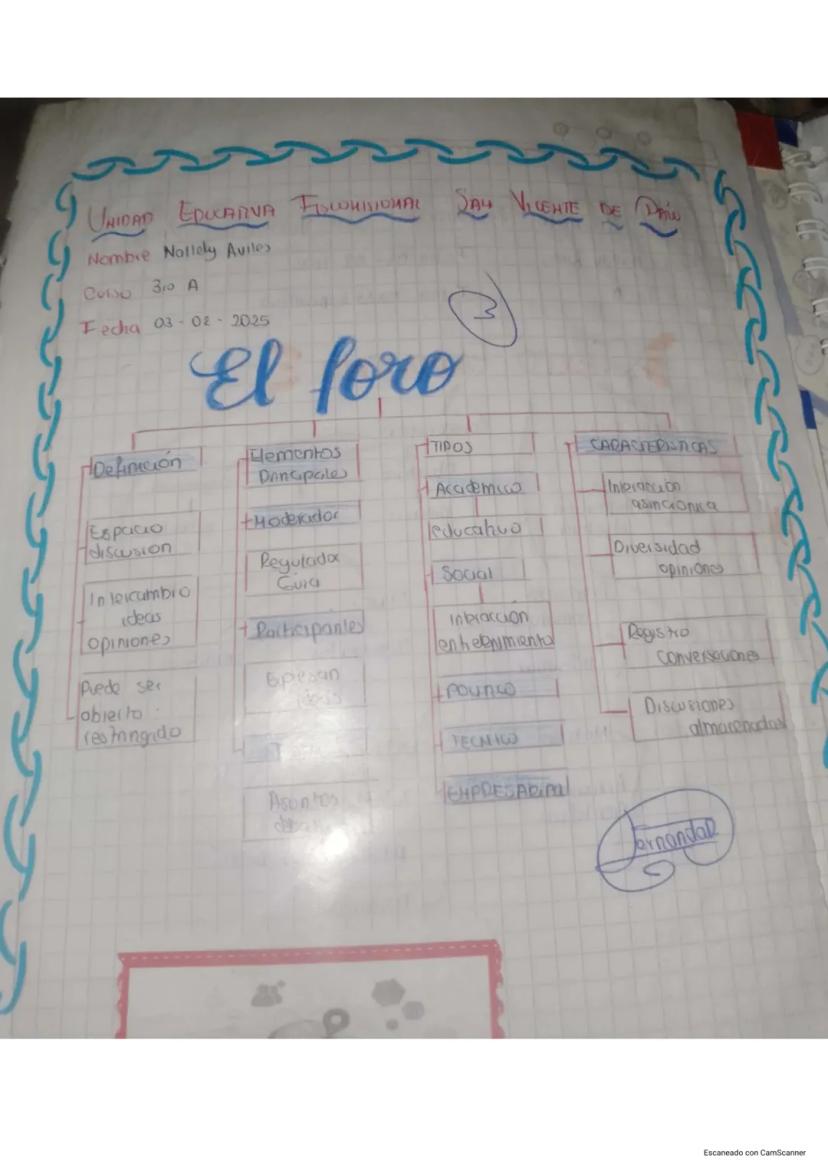 UNIDAD EDUCATIVA FISCOMISIONAL SAN VICENTE DE
Nombre Nallely Aviles
Curso 3ro A
Fecha 03-02-2025
3
El foro
Definición
Espacio
discusion
Intercambio
ideas
opiniones
Puede ser
abierto
restangido
Elementos
Principales
Moderador
Regulador
Guia
Participantes
Epesan
ideas
Asuntos
TIPOS
Academico
educativo
Social
Interacción
entretenimiento
POLITICO
TECNICO
EMPRESARIAL
CARACTERISTICAS
Interacción
asincronica
Diversidad
opiniones
Registro
conversaciones
Discusiones
almacenadas
Escaneado con CamScanner